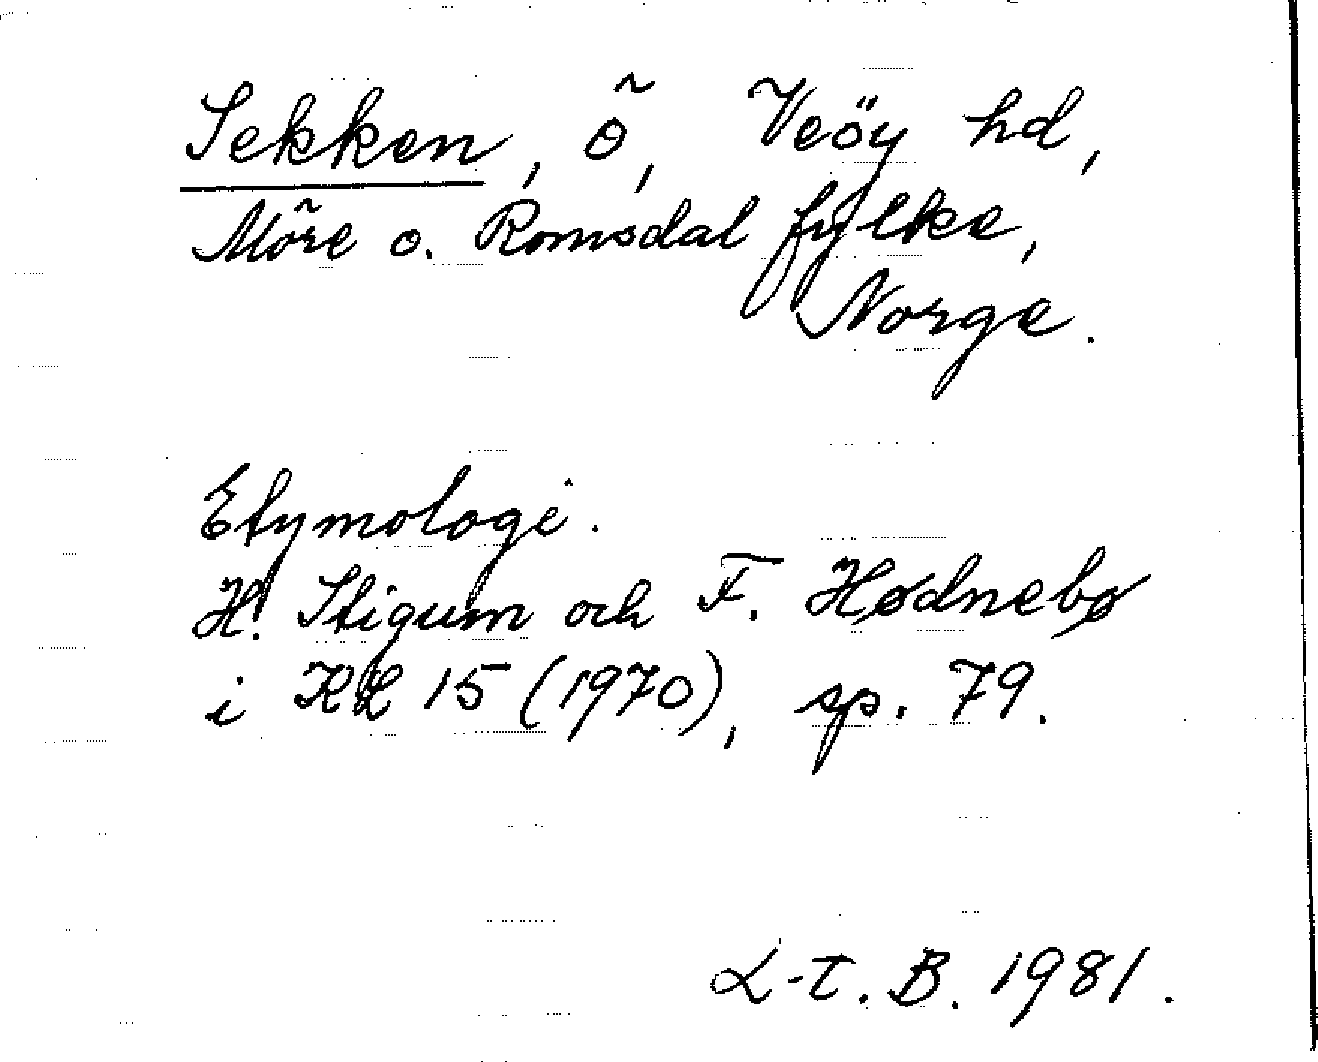 Sekken, ö, Veöy hd,
Möre o. Romsdal fylke,
Norge.
Etymologi.
H. Stigum och F. Hødnebø
i KL 15 (1970), sp. 79.
L-T. B. 1981.